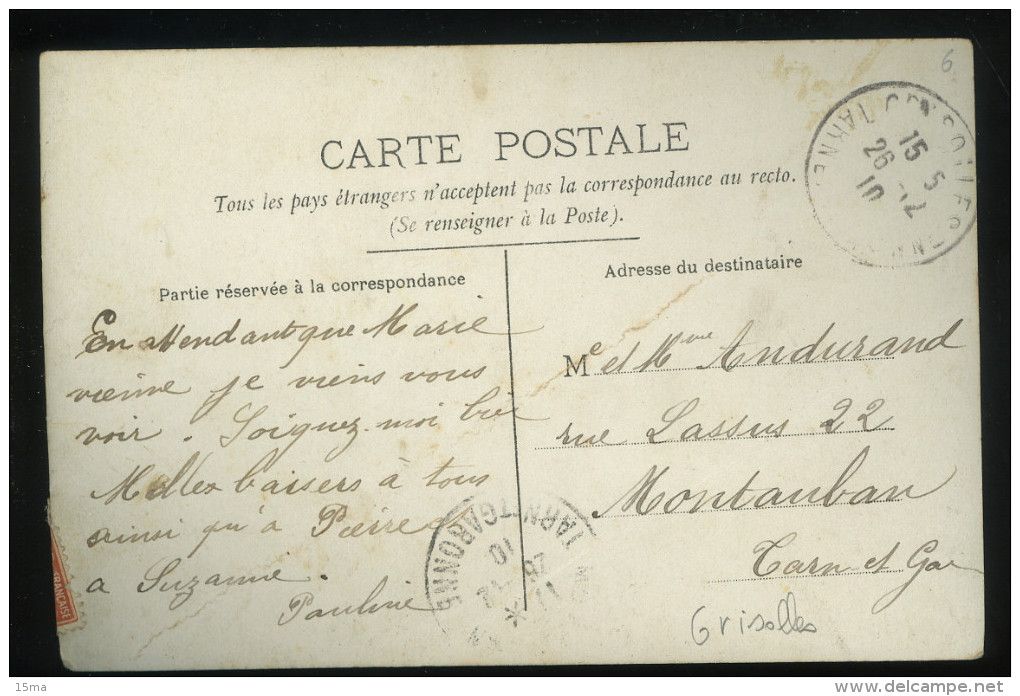 6.
CARTE POSTALE
Tous les pays étrangers n'acceptent pas la correspondance au recto.
(Se renseigner à la Poste).
Partie réservée à la correspondance
En attendant que Marie
vienne je viens vous
voir. Soignez-moi bien
Milles baisers à tous
ainsi qu'à Pierre
a Suzanne.
Pauline
Adresse du destinataire
Mr et Mme Andurand
rue Lassus 22
Montauban
Tarn et Gar
Grisolles
15 5
26 -12
10
MARNE
TARN-ET-GARONNE
10
FRANÇAISE
15ma
www.delcampe.net